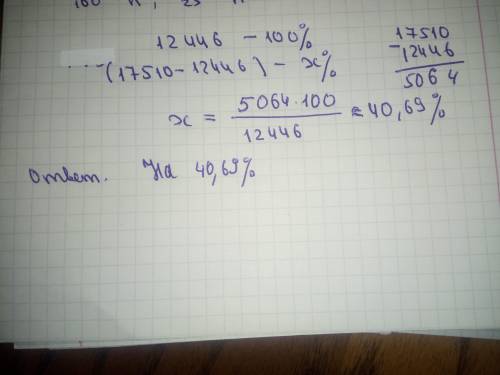 12446 – 100%
(17510 – 12446) – x%
17510
-12446
5064
x = 5064·100 / 12446 ≈ 40,69%
Ответ. На 40,69%